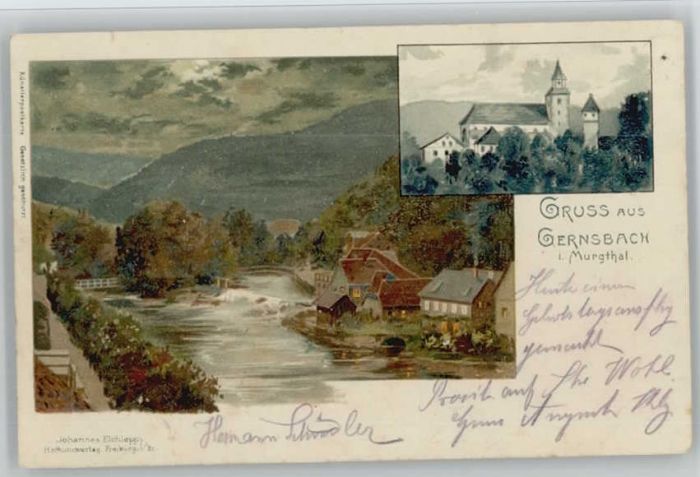 Künstlerpostkarte Gesetzlich geschützt.
GRUSS AUS
GERNSBACH
i. Murgthal.
Heute einen
gemacht
Prosit auf Ihr Wohl.
Hermann
Johannes Elchlepp,
Hofkunstverlag, Freiburg i. Br.